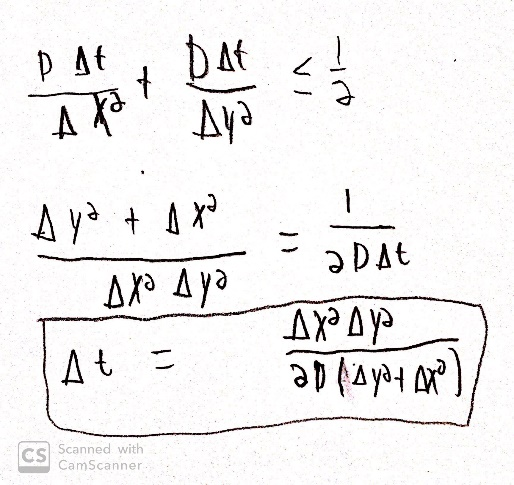 D Δt / Δx² + DΔt / Δy² ≤ 1/2
Δy² + Δx² / Δx² Δy² = 1 / 2DΔt
Δt = Δx² Δy² / 2D (Δy² + Δx²)
CS Scanned with
CamScanner